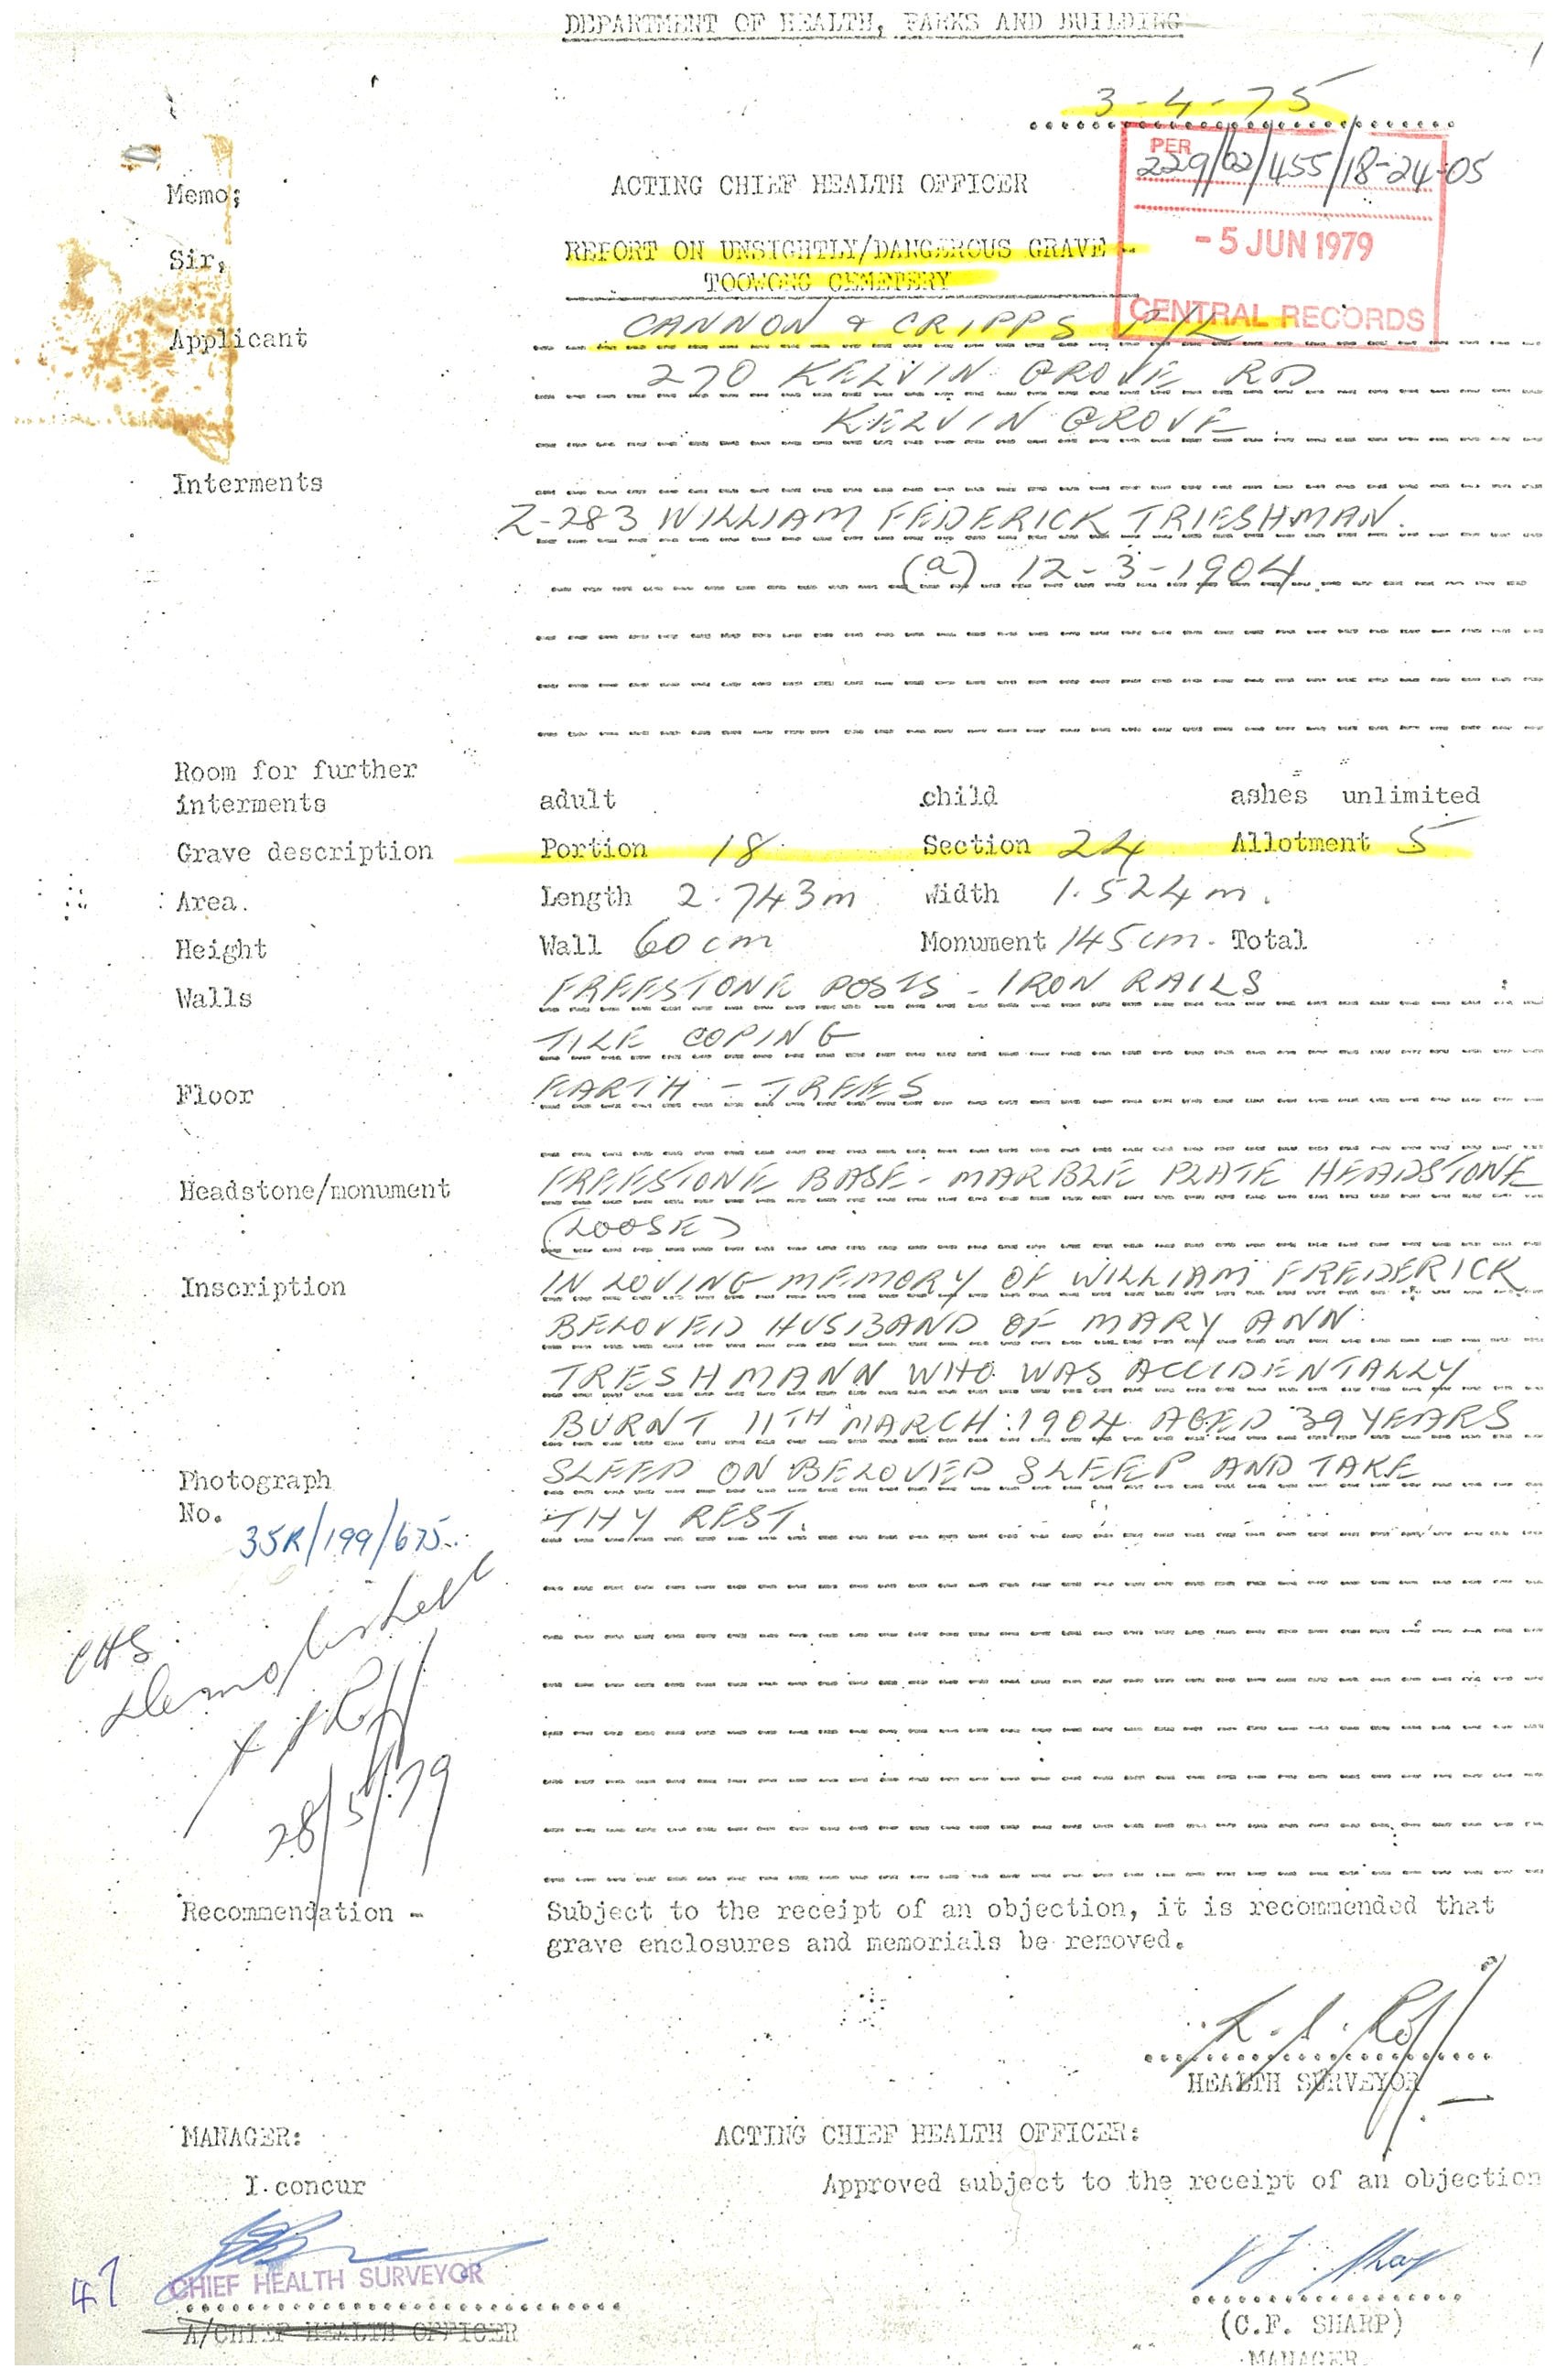 DEPARTMENT OF HEALTH, PARKS AND BUILDING
3-4-75
PER
229/02/455/18-24-05
Memo;
ACTING CHIEF HEALTH OFFICER
- 5 JUN 1979
Sir,
REPORT ON UNSIGHTLY/DANGEROUS GRAVE -
TOOWONG CEMETERY
CENTRAL RECORDS
Applicant CANNON & CRIPPS P/L
270 KELVIN GROVE RD
KELVIN GROVE
Interments
Z-283 WILLIAM FEDERICK TRIESHMAN.
(a) 12-3-1904
Room for further
interments adult child ashes unlimited
Grave description Portion 18 Section 24 Allotment 5
Area. Length 2.743m Width 1.524m.
Height Wall 60cm Monument 145cm. Total
Walls FREESTONE POSTS - IRON RAILS
TILE COPING
Floor EARTH - TREES
Headstone/monument FREESTONE BASE - MARBLE PLATE HEADSTONE
(LOOSE)
Inscription IN LOVING MEMORY OF WILLIAM FREDERICK
BELOVED HUSBAND OF MARY ANN
TRESHMANN WHO WAS ACCIDENTALLY
BURNT 11TH MARCH 1904 AGED 39 YEARS
Photograph SLEEP ON BELOVED SLEEP AND TAKE
No. THY REST.
35R/199/675
CHS
Demolished
28/5/79
Recommendation - Subject to the receipt of an objection, it is recommended that
grave enclosures and memorials be removed.
HEALTH SURVEYOR
MANAGER: ACTING CHIEF HEALTH OFFICER:
I concur Approved subject to the receipt of an objection
47
CHIEF HEALTH SURVEYOR
A/CHIEF HEALTH OFFICER
(C.F. SHARP)
MANAGER